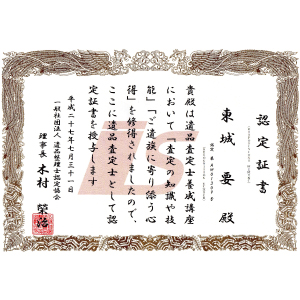 認定証書
東城 要 殿
貴殿は遺品査定士養成講座
において『査定の知識や技
能』『ご遺族に寄り添う心
得』を修得されましたので、
ここに遺品査定士として認
定証書を授与します
平成二十七年七月三十一日
一般社団法人 遺品整理士認定協会
理事長 木村 榮治